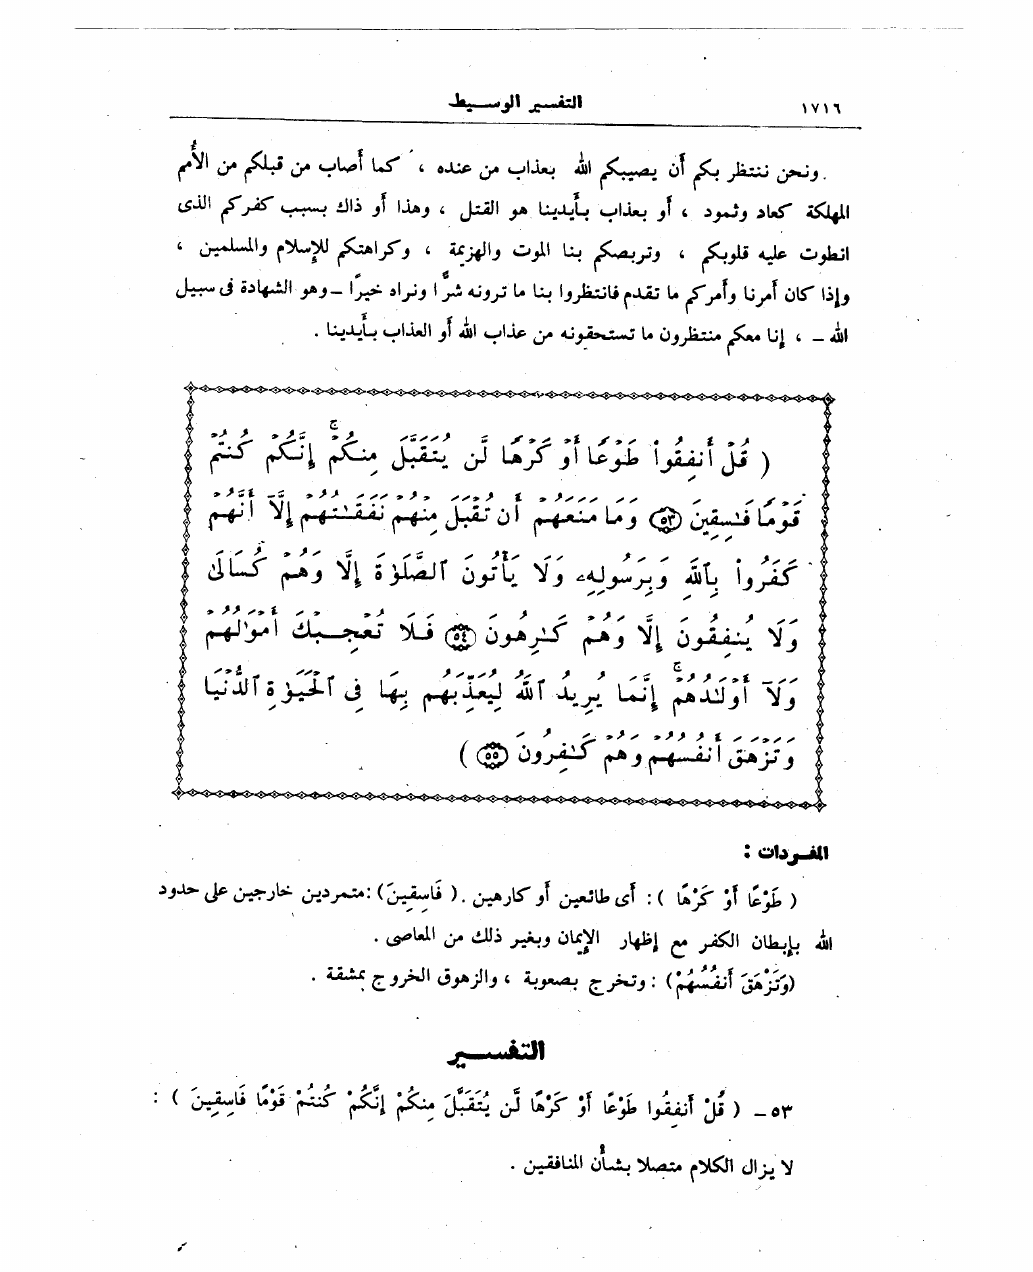 ١٧١٦ التفسير الوسيط
ونحن ننتظر بكم أن يصيبكم الله بعذاب من عنده ، كما أصاب من قبلكم من الأُمم
المهلكة كعاد وثمود ، أو بعذاب بأيدينا هو القتل ، وهذا أو ذاك بسبب كفركم الذى
انطوت عليه قلوبكم ، وتربصكم بنا الموت والهزيمة ، وكراهتكم للإسلام والمسلمين ،
وإذا كان أمرنا وأمركم ما تقدم فانتظروا بنا ما ترونه شرًّا ونراه خيرًا – وهو الشهادة فى سبيل
الله – ، إنا معكم منتظرون ما تستحقونه من عذاب الله أو العذاب بأيدينا .
( قُلْ أَنفِقُوا۟ طَوْعًا أَوْ كَرْهًا لَّن يُتَقَبَّلَ مِنكُمْ ۖ إِنَّكُمْ كُنتُمْ
قَوْمًا فَـٰسِقِينَ ﴿٥٣﴾ وَمَا مَنَعَهُمْ أَن تُقْبَلَ مِنْهُمْ نَفَقَـٰتُهُمْ إِلَّآ أَنَّهُمْ
كَفَرُوا۟ بِٱللَّهِ وَبِرَسُولِهِۦ وَلَا يَأْتُونَ ٱلصَّلَوٰةَ إِلَّا وَهُمْ كُسَالَىٰ
وَلَا يُنفِقُونَ إِلَّا وَهُمْ كَـٰرِهُونَ ﴿٥٤﴾ فَلَا تُعْجِبْكَ أَمْوَٰلُهُمْ
وَلَآ أَوْلَـٰدُهُمْ ۚ إِنَّمَا يُرِيدُ ٱللَّهُ لِيُعَذِّبَهُم بِهَا فِى ٱلْحَيَوٰةِ ٱلدُّنْيَا
وَتَزْهَقَ أَنفُسُهُمْ وَهُمْ كَـٰفِرُونَ ﴿٥٥﴾ )
المفـردات :
( طَوْعًا أَوْ كَرْهًا ) : أى طائعين أو كارهين . ( فَاسِقِينَ ) : متمردين خارجين على حدود
الله بإبطان الكفر مع إظهار الإيمان وبغير ذلك من المعاصى .
(وَتَزْهَقَ أَنفُسُهُمْ) : وتخرج بصعوبة ، والزهوق الخروج بمشقة .
التفســـير
٥٣ – ( قُلْ أَنفِقُوا طَوْعًا أَوْ كَرْهًا لَّن يُتَقَبَّلَ مِنكُمْ إِنَّكُمْ كُنتُمْ قَوْمًا فَاسِقِينَ ) :
لا يزال الكلام متصلا بشأن المنافقين .